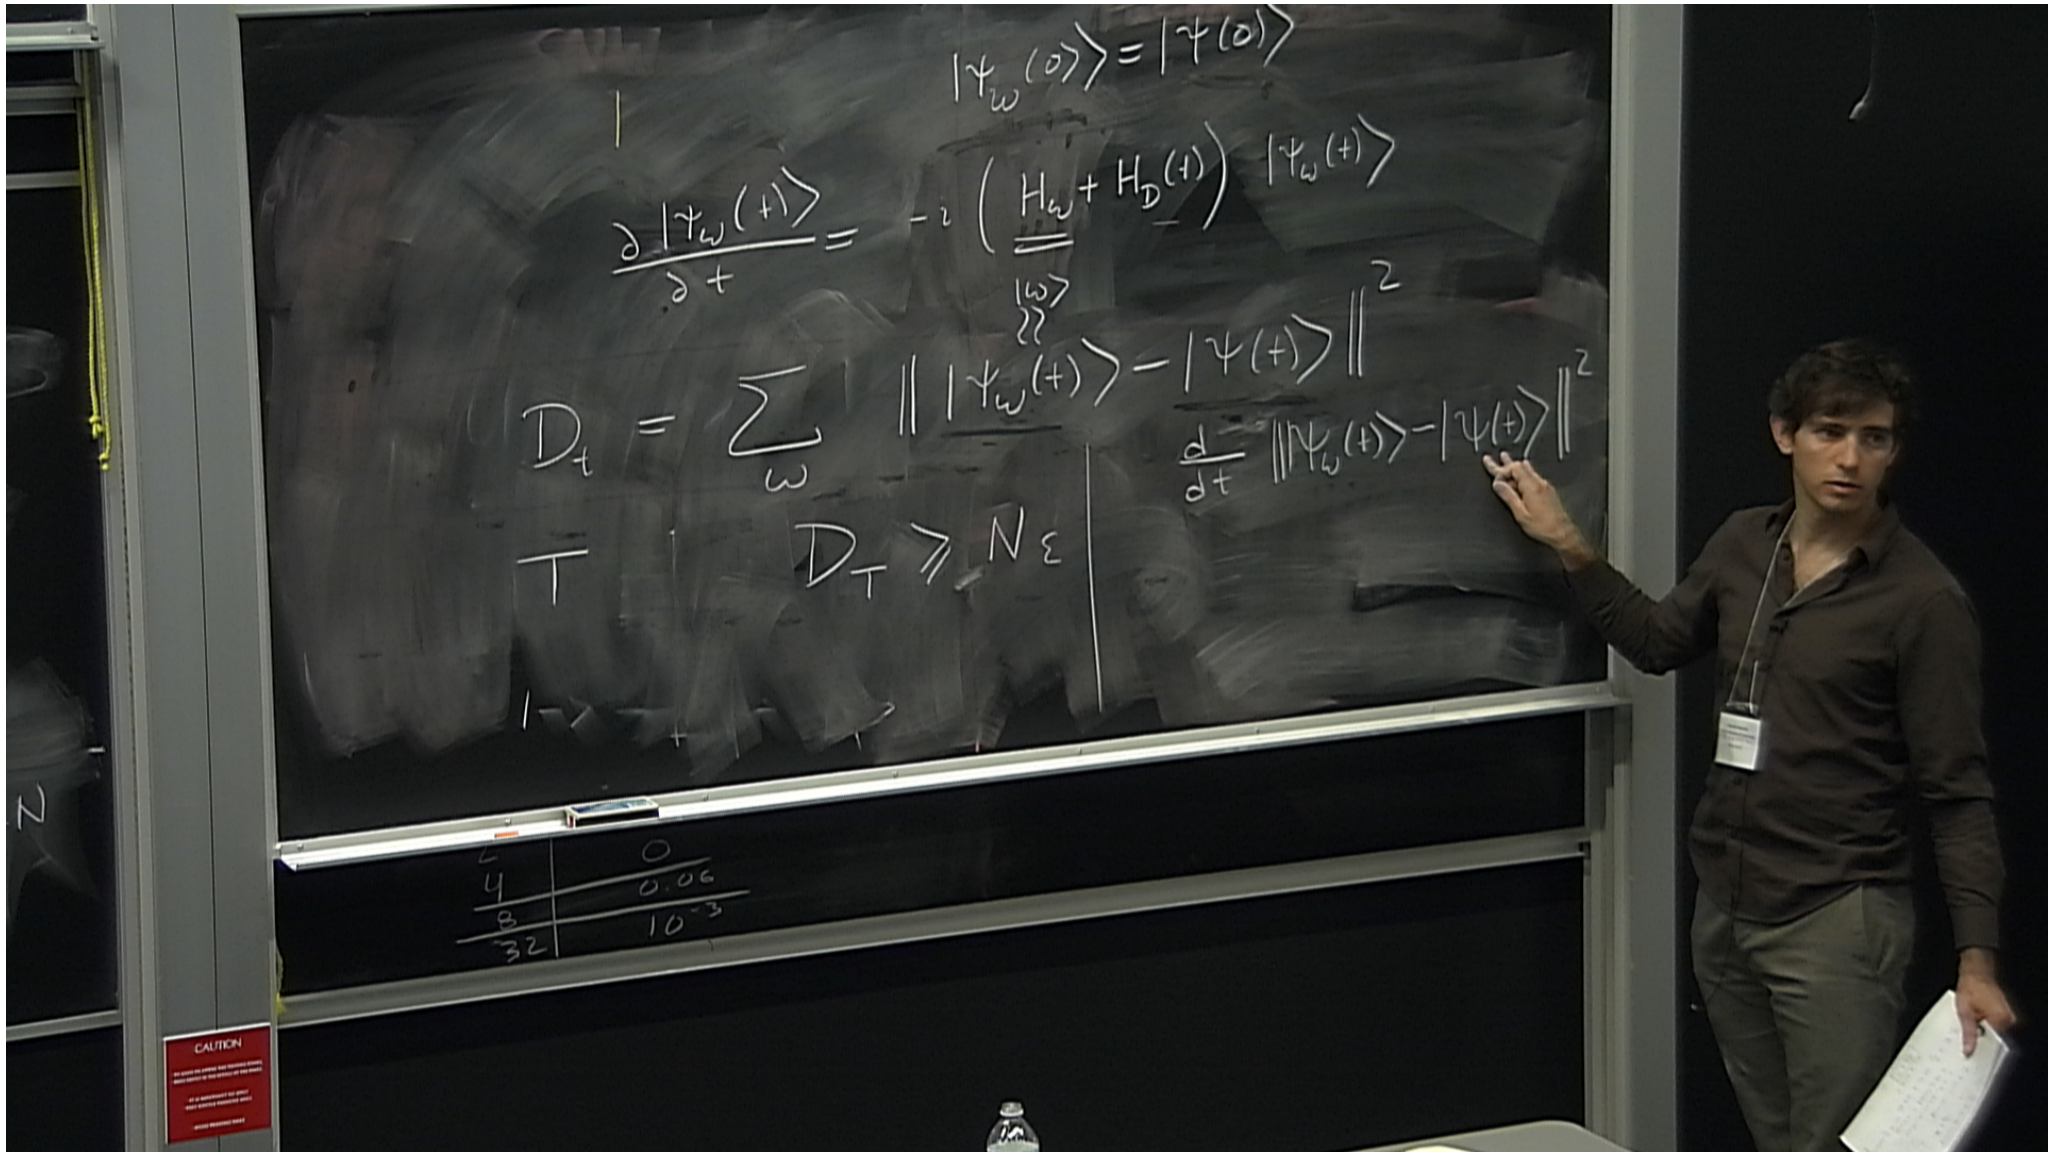 |ψ_ω(0)⟩ = |ψ(0)⟩
∂|ψ_ω(t)⟩/∂t = -i (H_ω + H_D(t)) |ψ_ω(t)⟩
|ω⟩
≈
D_t = Σ_ω || |ψ_ω(t)⟩ - |ψ(t)⟩ ||²
d/dt |||ψ_ω(t)⟩ - |ψ(t)⟩||²
T D_T ≥ Nε
N
0
4 0.06
8 10⁻³
32
CAUTION